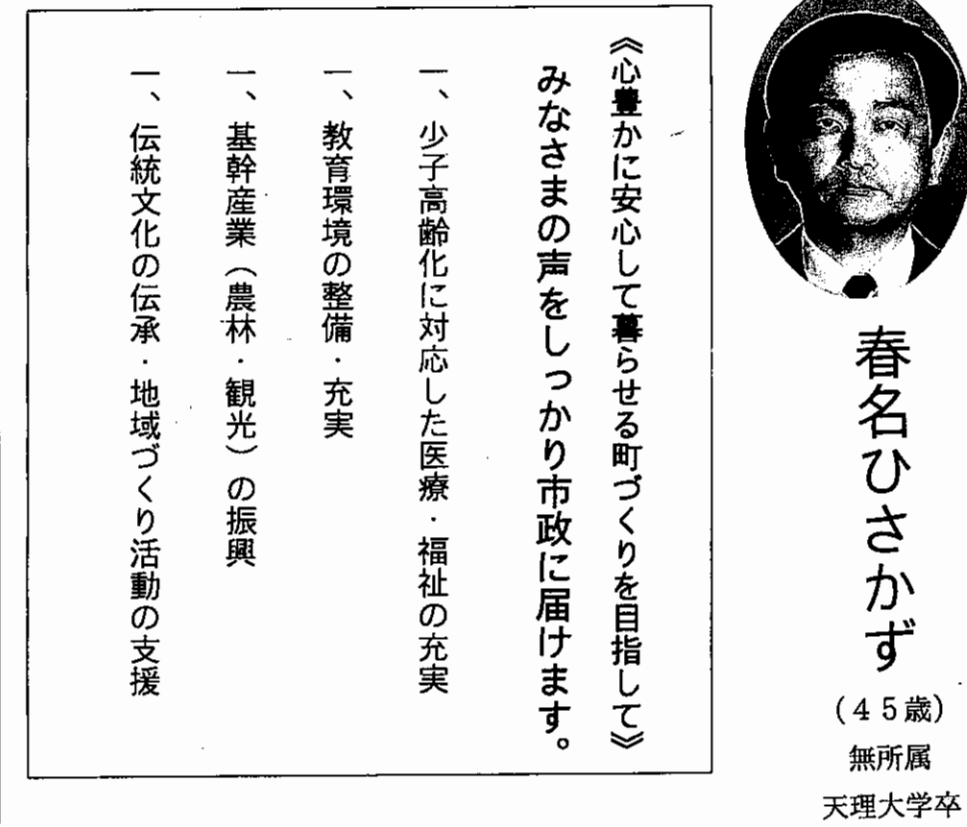 春名ひさかず
(45歳)
無所属
天理大学卒
《心豊かに安心して暮らせる町づくりを目指して》
みなさまの声をしっかり市政に届けます。
一、少子高齢化に対応した医療・福祉の充実
一、教育環境の整備・充実
一、基幹産業(農林・観光)の振興
一、伝統文化の伝承・地域づくり活動の支援